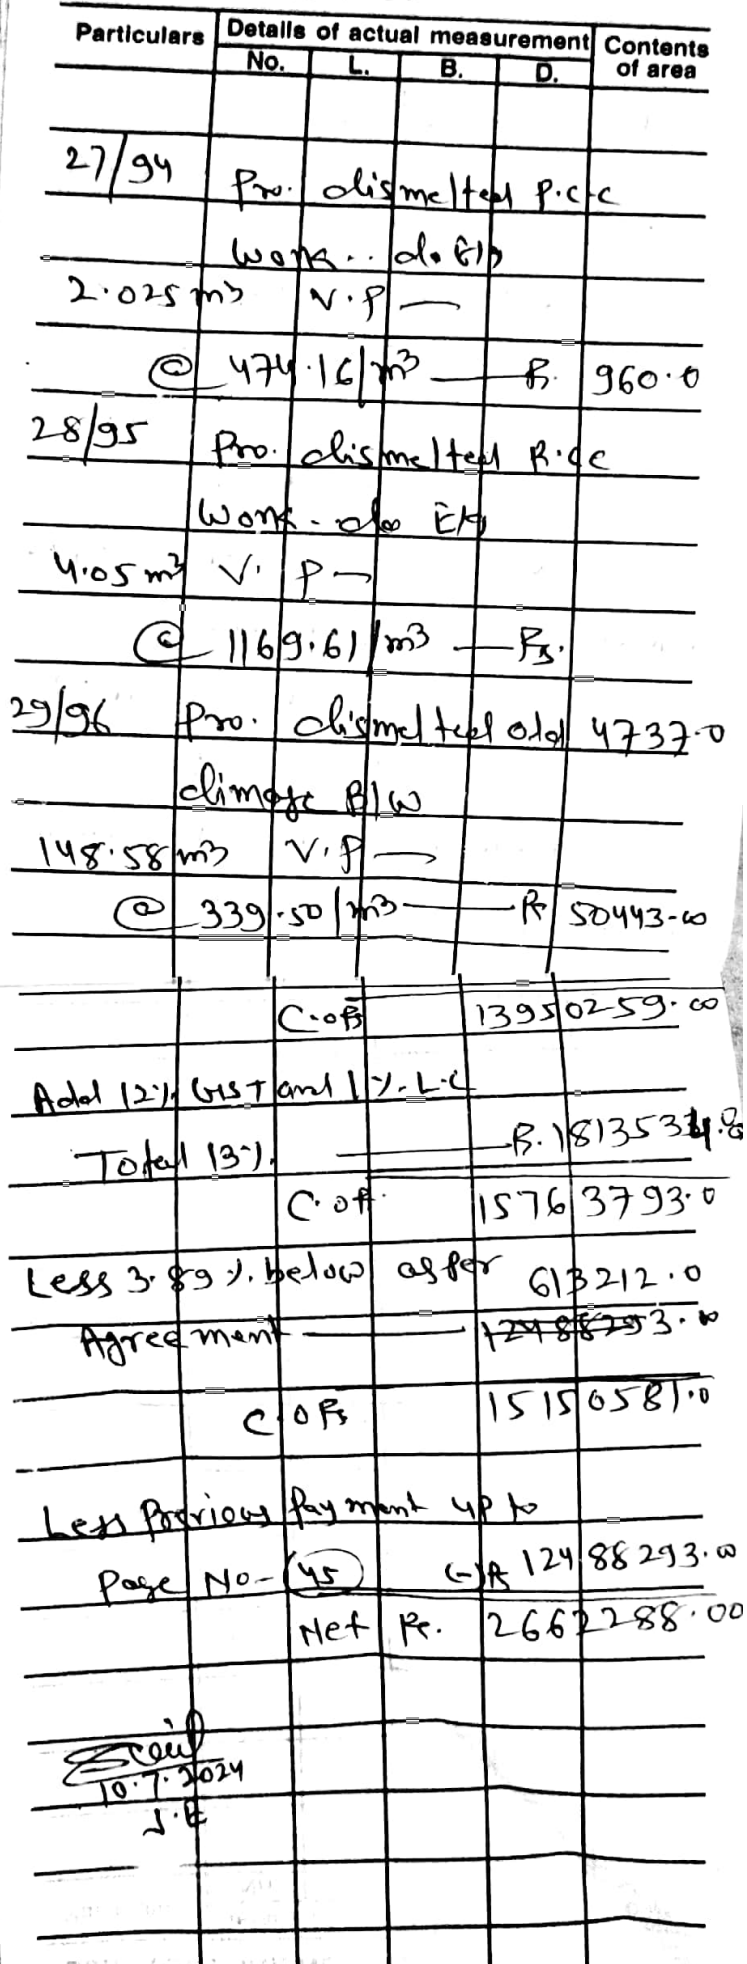 Particulars Details of actual measurement Contents of area
No. L. B. D.
27/94 Pro. dismelted P.C.C
work.. do E/p
2.025 m3 V.P —
@ 474.16/m3 — R. 960.0
28/95 Pro. dismelted R.C.C
work - do E/p
4.05 m3 V. P —
@ 1169.61/m3 — Rs.
29/96 Pro. dismelted old 4737.0
dimage B/W
148.58 m3 V.P —
@ 339.50/m3 — R 50443-00
C.o Rs 13950259.00
Add 12% GST and 1%. L.C
Total 13%. — R. 1813534.0
C.o R. 15763793.0
Less 3.89%. below as per 613212.0
Agreement — 12488293.00
C.O Rs 15150581.0
Less Previous Payment up to
Page No- 45 (-)R 12488293.00
Net Rs. 2662288.00
10.7.2024
J.E